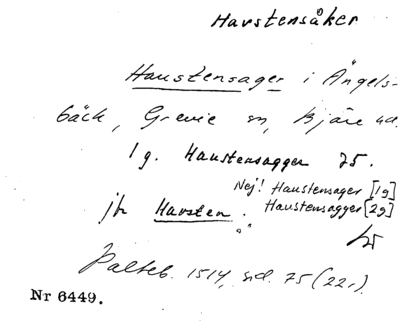 Havstensåker
Haustensager i Ängels-
bäck, Grevie sn, Bjäre hd.
1 g. Haustensagger 75.
Nej! Haustensager [1g]
jfr Havsten. Haustensagger [2g]
Palteb. 1514, sid. 75 (22r).
Nr 6449.